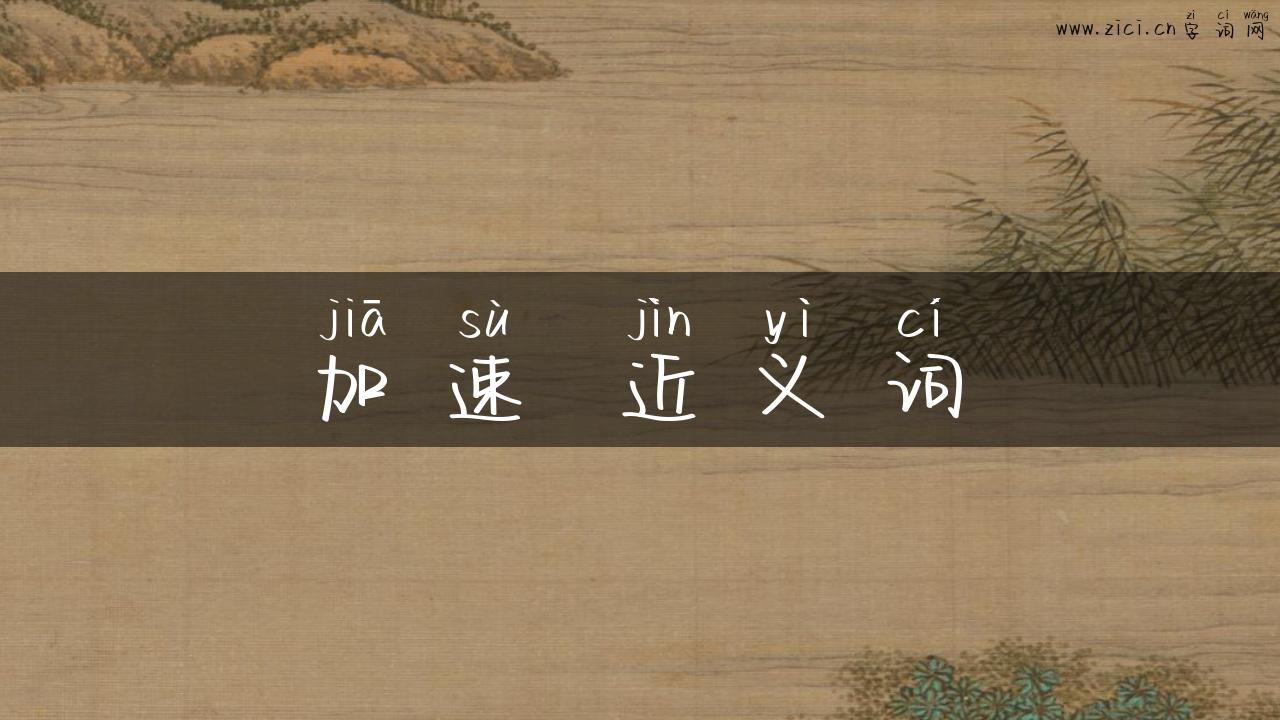 zì cí wǎng
www.zici.cn 字词网
jiā sù jìn yì cí
加速 近义词